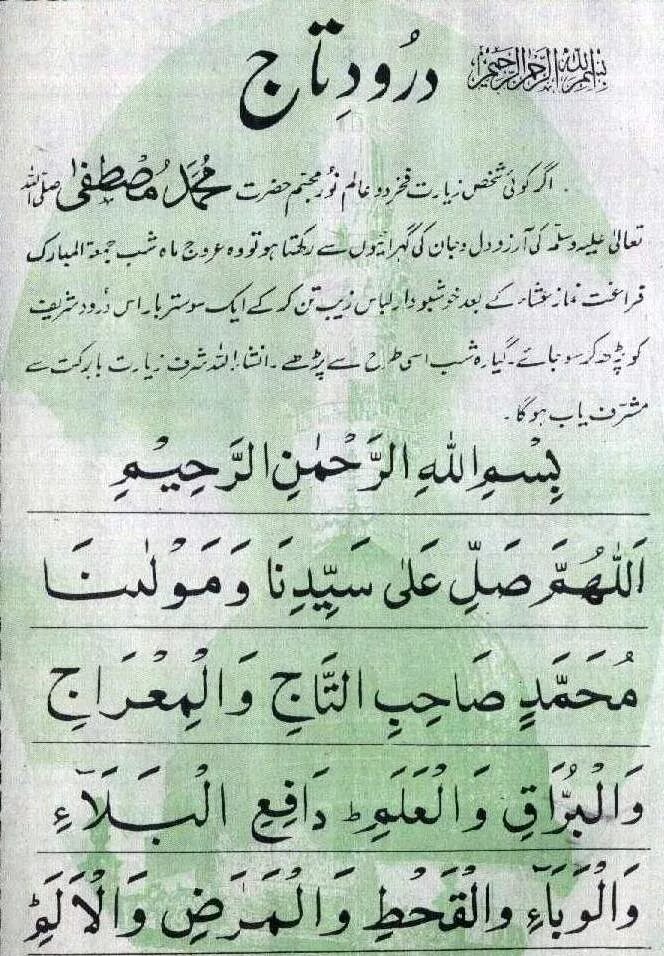 بسم الله الرحمن الرحيم
درُودِ تاج
اگر کوئی شخص زیارت فخر دو عالم نُور مجسّم حضرت مُحمّد مُصطفیٰ صلّی اللہ
تعالیٰ علیہ وسلّم کی آرزو دل و جان کی گہرائیوں سے رکھتا ہو تو وہ عروج ماہ شب جمعۃ المبارک
فراغت نماز عشاء کے بعد خوشبودار لباس زیب تن کر کے ایک سو ستر بار اس دُرود شریف
کو پڑھ کر سو جائے۔ گیارہ شب اسی طرح سے پڑھے۔ انشاء اللہ شرف زیارت بابرکت سے
مشرّف یاب ہوگا۔
بِسْمِ اللهِ الرَّحْمٰنِ الرَّحِيْمِ
اَللّٰهُمَّ صَلِّ عَلٰى سَيِّدِنَا وَمَوْلٰىنَا
مُحَمَّدٍ صَاحِبِ التَّاجِ وَالْمِعْرَاجِ
وَالْبُرَّاقِ وَالْعَلَمِ ؕ دَافِعِ الْبَلَآءِ
وَالْوَبَآءِ وَالْقَحْطِ وَالْمَرَضِ وَالْاَلَمِ ؕ